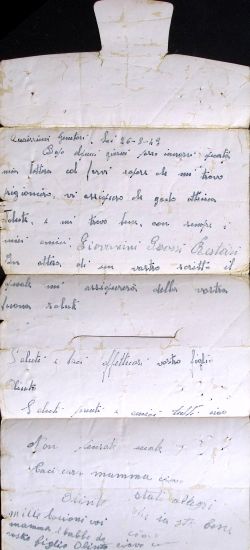 Carissimi Genitori, Lì 26-8-43
Dopo alcuni giorni invio questa
mia lettera col farvi sapere che mi trovo
prigioniero, vi assicuro che godo ottima
salute, e mi trovo bene con sempre i
miei amici Giovannini
In attesa di un vostro scritto il
quale mi assicurerà della vostra
buona salute
Saluti e baci affettuosi vostro figlio
Olinto
Saluti parenti e amici tutti ciao
Non pensate male
Baci cara mamma ciao
Olinto stai allegri
che io sto bene
mille bacioni voi ciao
mamma babbo da
vostro figlio Olinto ciao